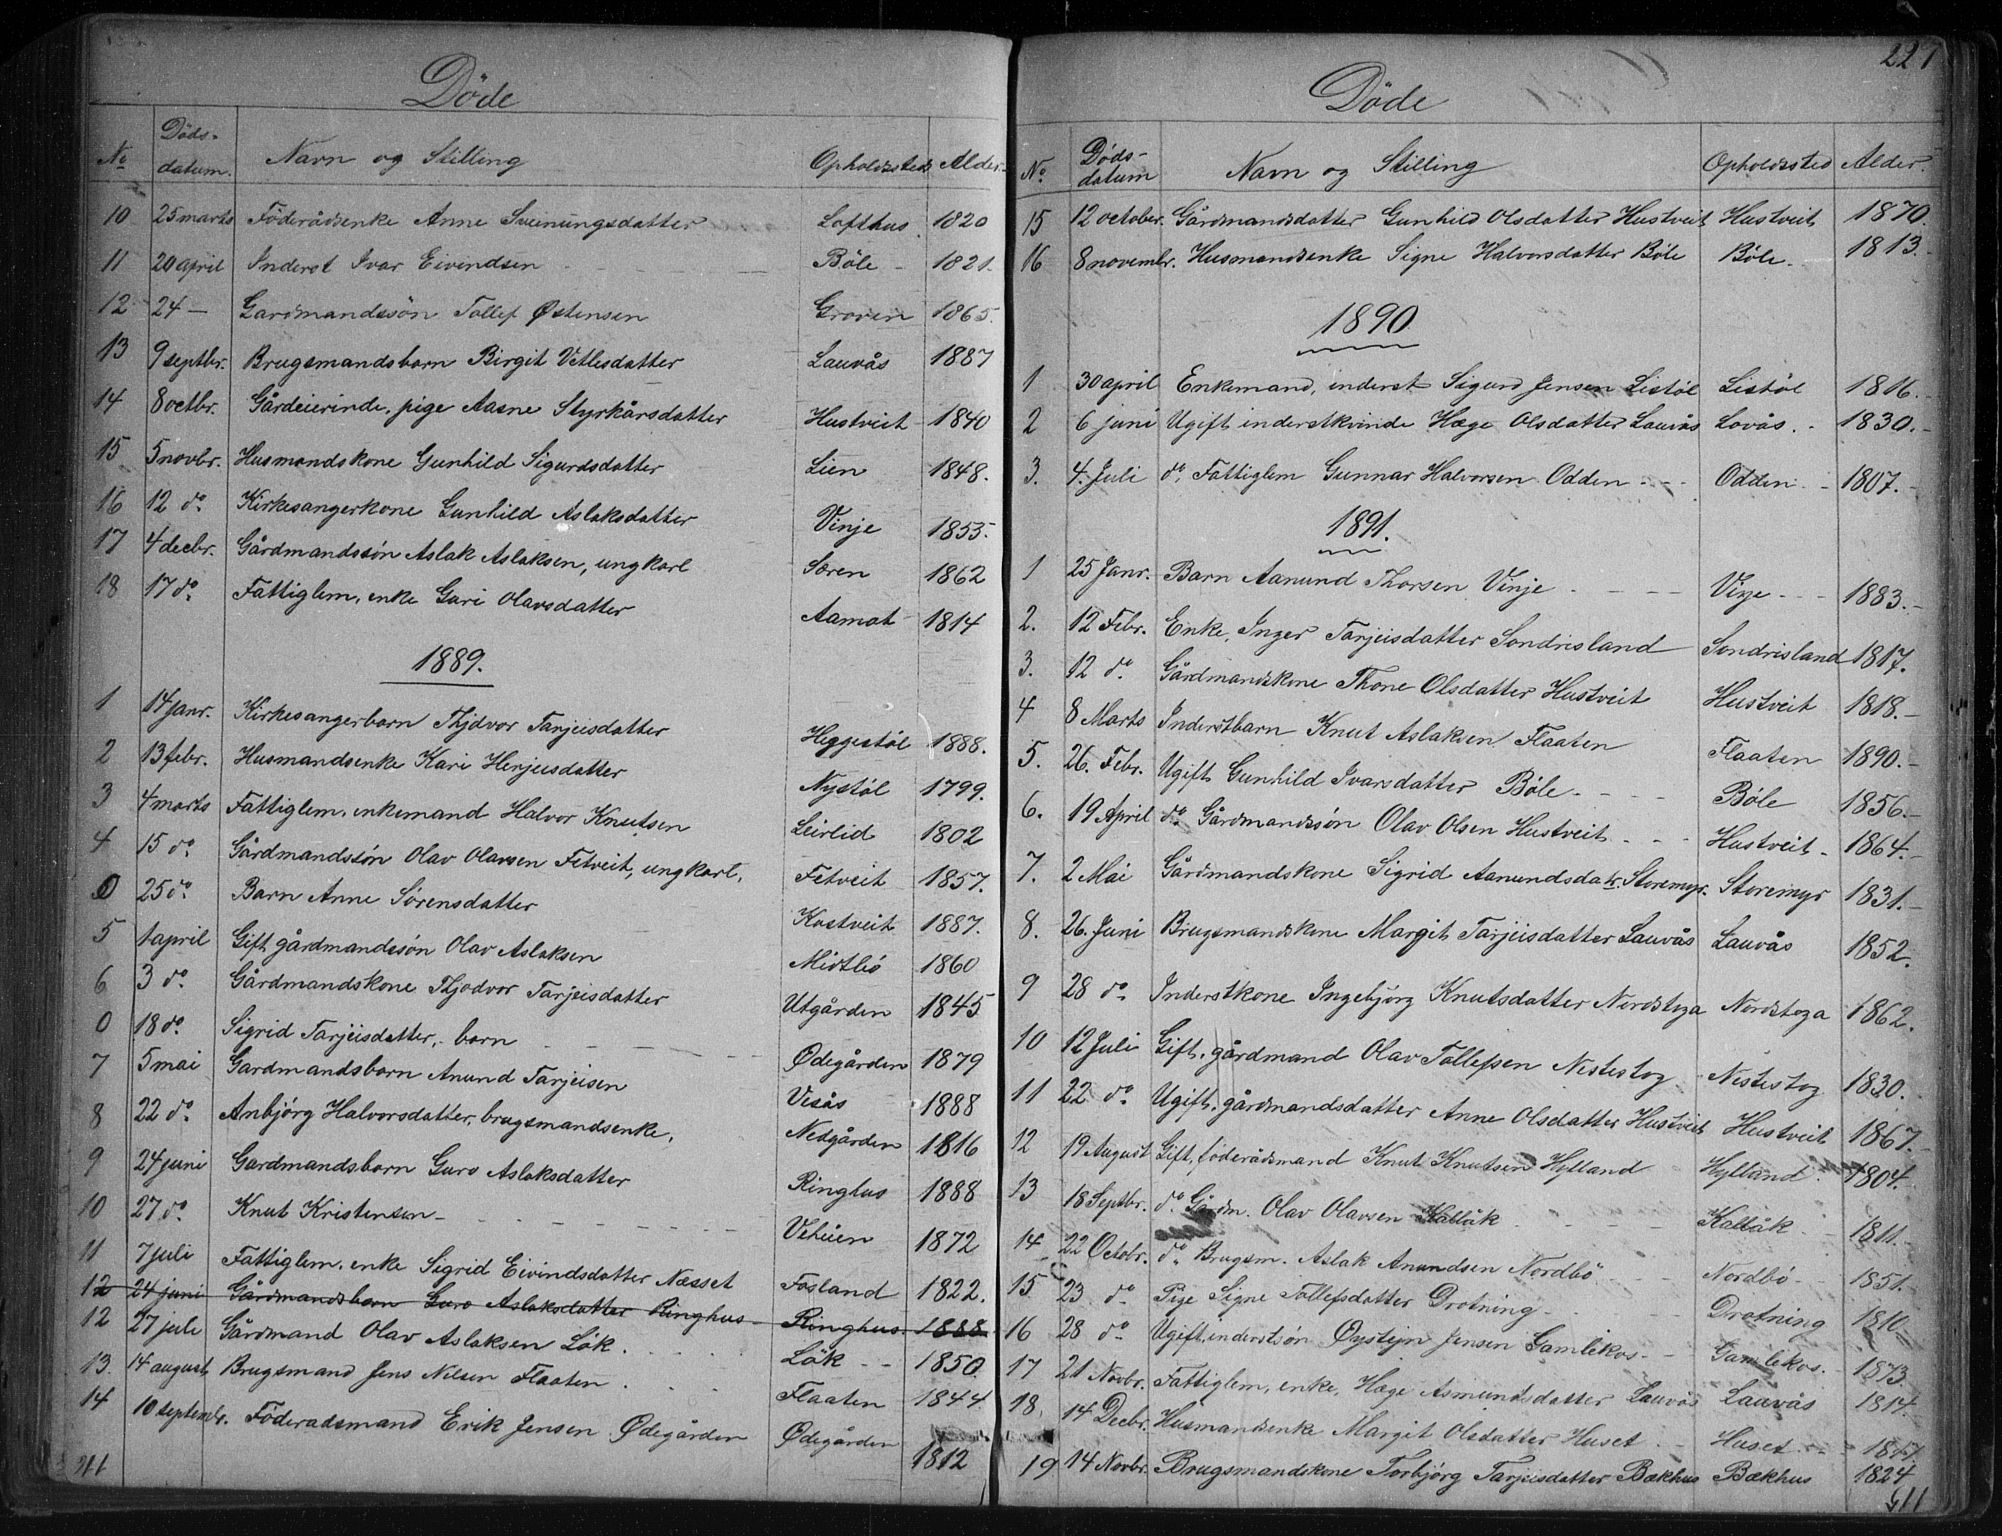 Döde
No Döds-datum. Navn og Stilling Opholdssted Alder.
10 25 marts Föderådsenke Anne Sveinungsdatter Lofthus 1820
11 20 april Inderst Ivar Eivindsen Böle 1821.
12 24 — Gardmandssön Tollef Østensen Groven 1865.
13 9 septbr. Brugsmandsbarn Birgit Vetlesdatter Lauvås 1887
14 8 octbr. Gårdeierinde, pige Aasne Styrkårsdatter Hustveit 1840
15 5 novbr. Husmandskone Gunhild Sigurdsdatter Lien 1848.
16 12 do. Kirkesangerkone Gunhild Aslaksdatter Vinje 1853.
17 4 decbr. Gårdmandssön Aslak Aslaksen, ungkarl Særen 1862
18 17 do. Fattiglem, enke Guri Olavsdatter Aamot 1814
1889.
1 14 janr. Kirkesangerbarn Thjdvor Tarjeisdatter Heggestöl 1888.
2 13 febr. Husmandsenke Kari Herjeisdatter Nystöl 1799.
3 4 marts Fattiglem, enkemand Halvor Knutsen Leirlid 1802
4 15 do. Gårdmandssön Olav Olavsen Fetveit, ungkarl. Fetveit 1857.
0 25 do. Barn Anne Sörensdatter Kostveit 1887.
5 1 april Gift gårdmandssön Olav Aslaksen Midtbö 1860
6 3 do. Gårdmandskone Thjodvor Tarjeisdatter Utgården 1845
0 18 do. Sigrid Tarjeisdatter, barn Ødegården 1879
7 5 mai Gardmandsbarn Anund Tarjeisen Visås 1888
8 22 do. Anbjörg Halvorsdatter, brugsmandsenke, Nedgården 1816
9 24 juni Gardmandsbarn Guro Aslaksdatter Ringhus 1888
10 27 do. Knut Kristensen Veheien 1872
11 7 juli Fattiglem, enke Sigrid Eivindsdatter Næsset Fosland 1822.
12 24 juni Gårdmandsbarn Guro Aslaksdatter Ringhus Ringhus 1888
12 27 juli Gårdmand Olav Aslaksen Lök. Lök 1850.
13. 14 august. Brugsmand Jens Nilsen Flaaten Flaaten 1844
14 10 septembr. Föderadsmand Erik Jensen Ødegården Ødegården 1812
227
Döde
No. Døds-datum Navn og Stilling Opholdssted Alder.
15 12 october. Gårdmandsdatter Gunhild Olsdatter Hustveit Hustveit 1870.
16 8 novembr. Husmandsenke Signe Halvorsdatter Böle Böle 1813.
1890
1 30 april Enkemand, inderst Sigurd Jensen Listöl Listöl 1816.
2 6 juni Ugift inderstkvinde Hæge Olsdatter Lauvås Lovås. 1830.
3. 4. Juli do. Fattiglem Gunnar Halvorsen Odden Odden 1807.
1891.
1 25 Janr. Barn Aanund Thorsen Vinje Vinje 1883.
2. 12 Febr. Enke, Inger Tarjeisdatter Sondrisland Sondrisland 1817.
3. 12 do Gårdmandskone Thone Olsdatter Hustveit Hustveit 1818.
4 8 Marts Inderstbarn Knut Aslaksen Flaaten Flaaten 1890.
5. 26. Febr. Ugift Gunhild Ivarsdatter Böle Böle 1856
6. 19 April do. Gårdmandssön Olav Olsen Hustveit Hustveit 1864.
7. 2 Mai Gårdmandskone Sigrid Aanundsdatr. Storemyr. Storemyr 1831.
8. 26. Juni Brugsmandskone Margit Tarjeisdatter Lauvås Lauvås 1852.
9 28 do. Inderstkone Ingebjörg Knutsdatter Nordstoga Nordstoga 1862.
10 12 Juli Gift, gårdmand Olav Tollefsen Nistestog Nistestog 1830.
11 22 do. Ugift, gårdmandsdatter Anne Olsdatter Hustveit Hustveit 1867.
12 19 August Gift, föderådsmand Knut Knutsen Hylland Hylland 1804.
13 18 Septbr. do. Gårdm. Olav Olavsen Kallåk Kallåk 1811.
14 22 Octobr. do. Brugsm. Aslak Anundsen Nordbö Nordbö 1851.
15. 23 do. Pige Signe Tollefsdatter Drotning Drotning 1810
16 28 do. Ugift, inderstsön Øystejn Jensen Gamlekos Gamlekos 1873.
17 21 Novbr. Fattiglem, enke, Hæge Asmundsdatter Lauvås Lauvås 1814.
18. 14 Decbr. Husmandsenke Margit Olsdatter Huset Huset
19 14 Novbr. Brugsmandskone Torbjörg Tarjeisdatter Bækhus Bækhus 1824